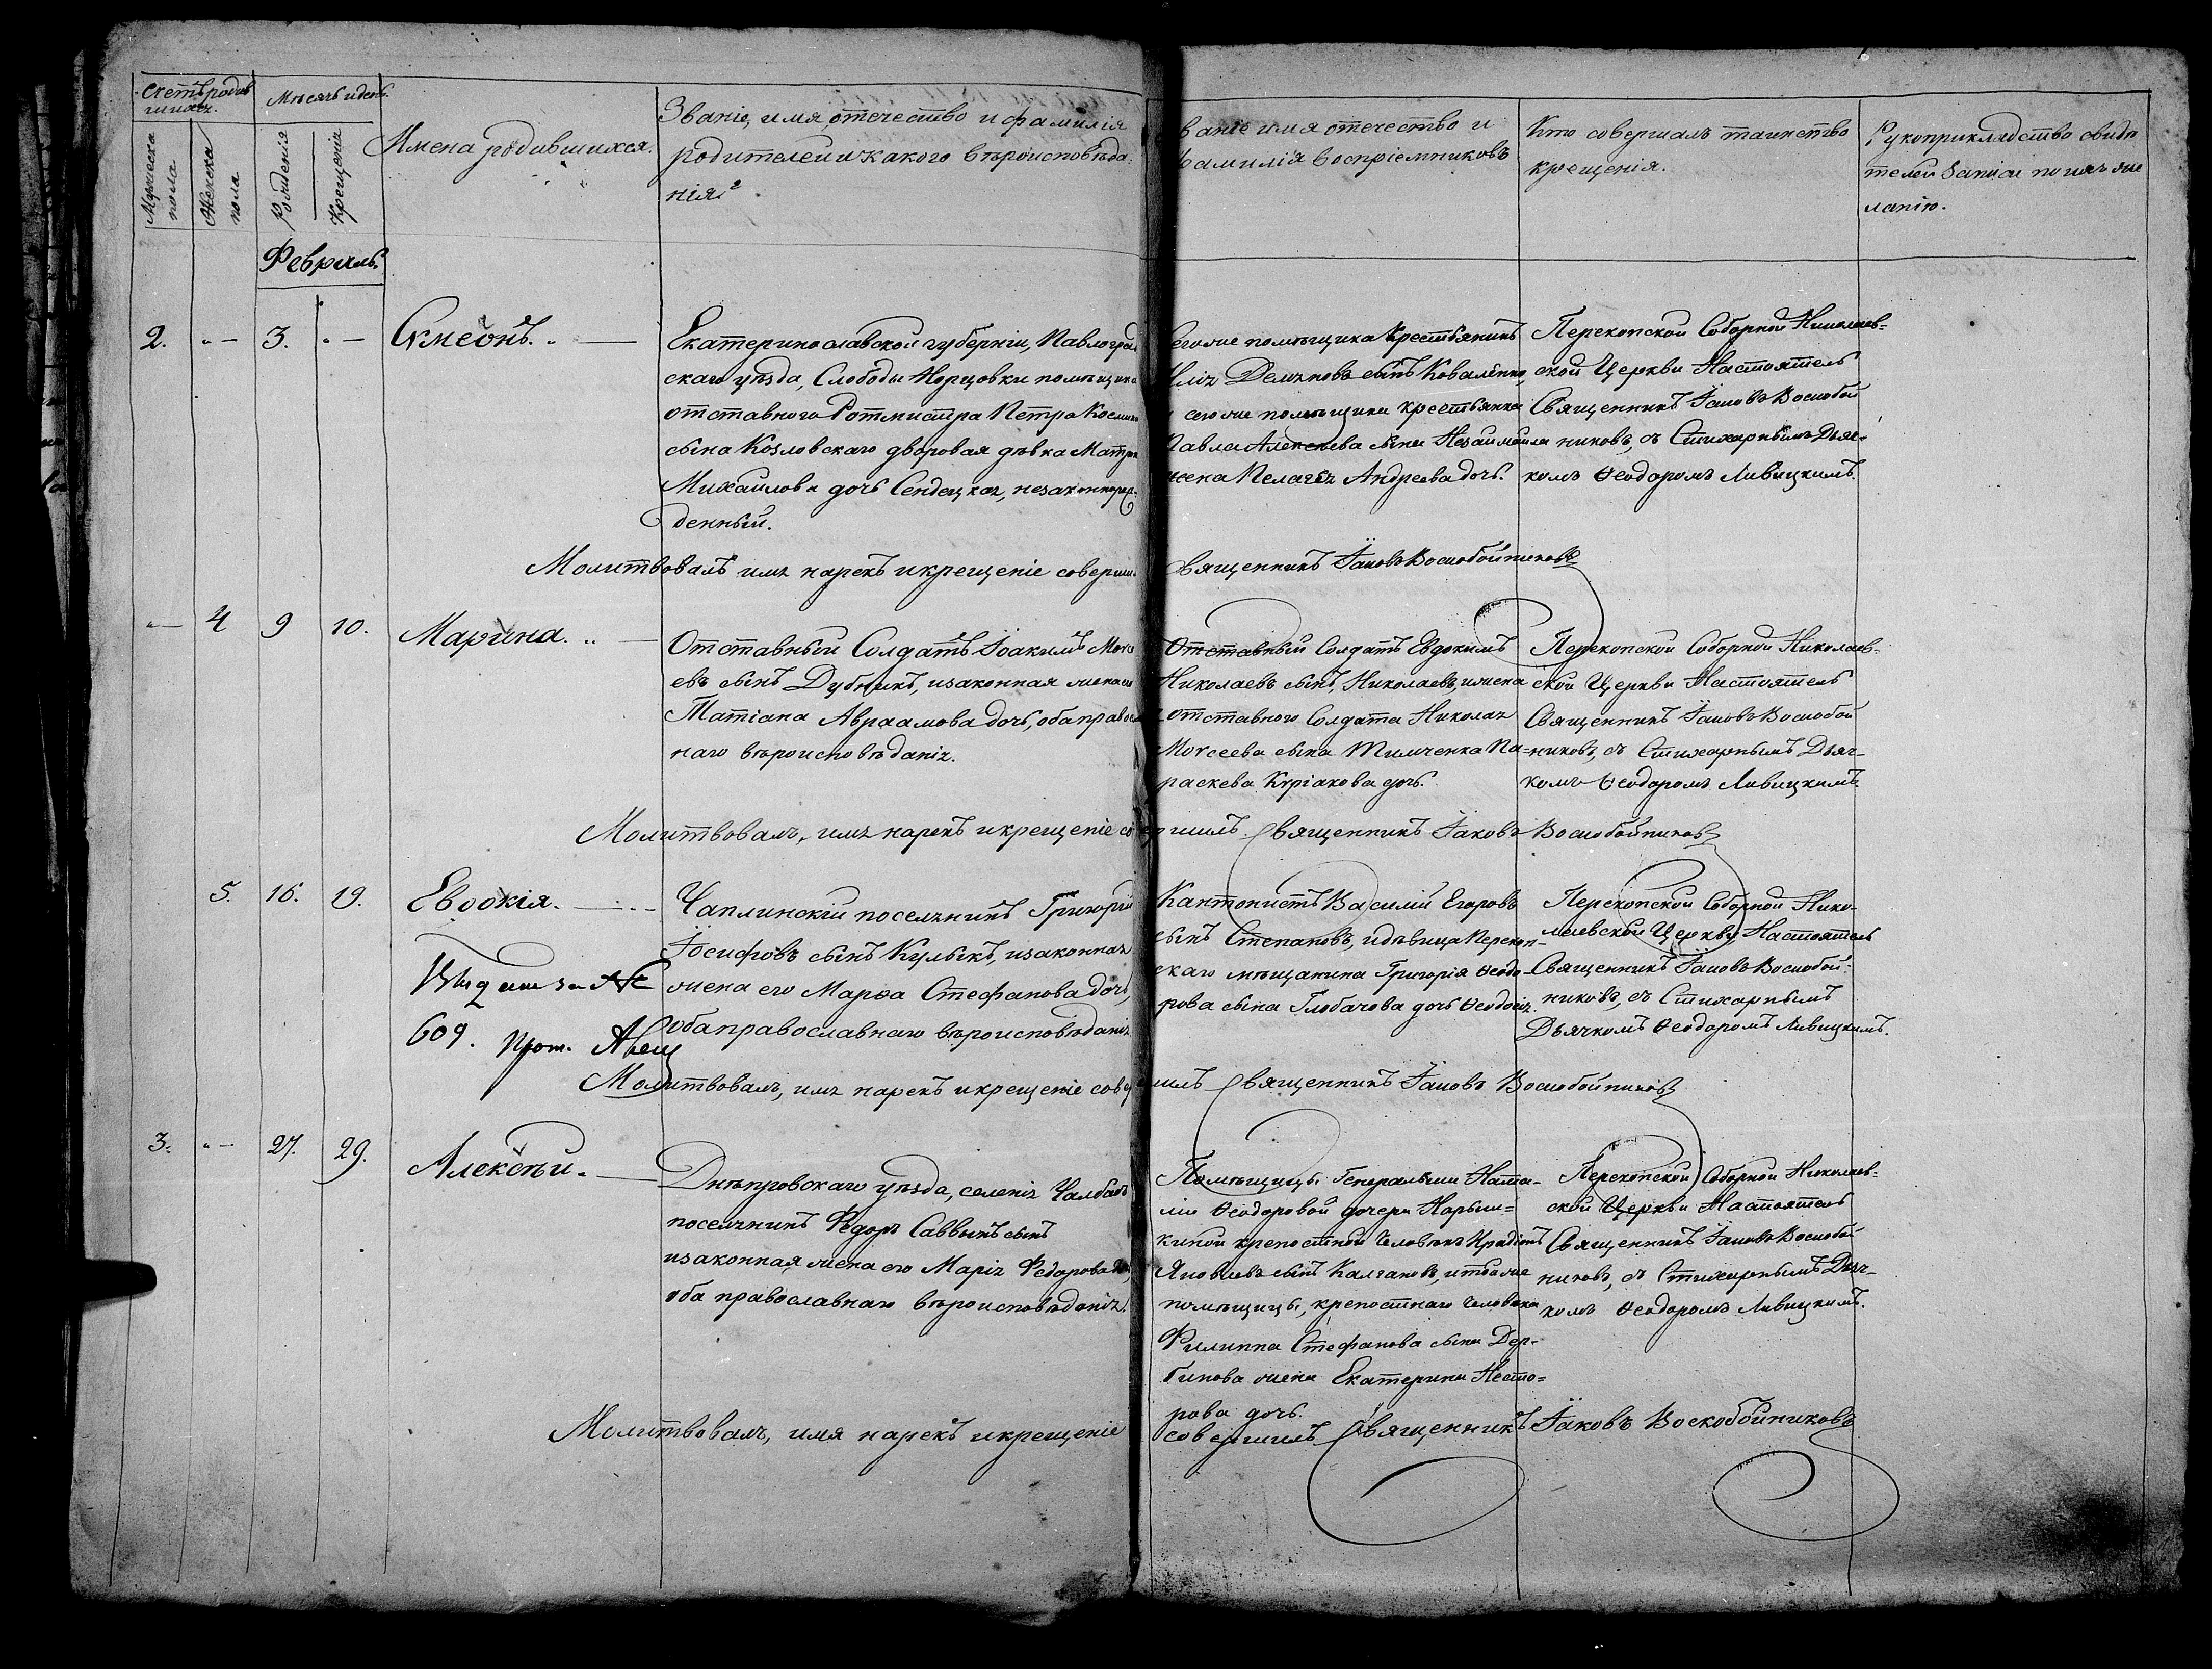 Счетъ родив
шихся.
Мѣсяцъ и день.
Мужеска
пола
Женска
пола
Рожденія
Крещенія
Имена родившихся.
Званіе, имя, отечество и фамилія
родителей и какого вѣроисповѣда-
нія.
ваніе имя отечество и
амилія воспріемниковъ
Кто совершалъ таинство
крещенія.
Рукоприкладство свидѣ
телей записи по ихъ же
ланію.
Февраль.
2. „— 3. „—
Сѵмеонъ.
Екатеринославской губерніи, Павлоград
скаго уѣзда, Слободы помѣщика
отставного Ротмистра Петра Космина
сына Козловскаго дворовая дѣвка Матрон
Михайлова дочь Сендецкая, незаконнорож-
денный.
его же помѣщика крестьянинъ
сынъ Коваленко,
сего же помѣщика крестьянина
Павла Алексѣева сына
жена Пелагѣя Андреева дочь.
Перекопской Соборной Николаев-
ской Церкви Настоятель
Священникъ Іаковъ Воскобой
никовъ, съ Стихарнымъ Дьяч-
комъ Ѳеодоромъ Ливицкимъ.
Молитвовалъ имя нарекъ и крещеніе соверши
Священникъ Іаковъ Воскобойниковъ
„— 4 9 10.
Марина. „ —
Отставный Солдатъ Іоакимъ Моѵс
евъ сынъ Дубникъ, и законная жена ег
Татіана Авраамова дочь, оба правос
наго вѣроисповѣданія.
Отставный Солдатъ Евдокимъ
Николаевъ сынъ, Николаевъ, и жена
отставного Солдата Николая
Моѵсеева сына Тимченка Па-
раскева Кѵріакова дочь.
Перекопской Соборной Николаев-
ской Церкви Настоятель
Священникъ Іаковъ Воскобой
никовъ, съ Стихарнымъ Дьяч-
комъ Ѳеодоромъ Ливицкимъ.
Молитвовалъ, имя нарекъ и крещеніе со
ершилъ Священникъ Іаковъ Воскобойниковъ
5. 16. 19.
Евдокія.
Выдано за №
609. Прот.
Чаплинскій поселянинъ Григорій
Іосифовъ сынъ Кулькъ, и законная
жена его Марѳа Стефанова дочь,
оба православнаго вѣроисповѣданія
Кантонистъ Василій Егоровъ
сынъ Степановъ, и дѣвица Перекоп-
скаго мѣщанина Григорія Ѳеодо-
рова сына Глобачова дочь Ѳеодосія.
Перекопской Соборной Нико-
лаевской Церкви Настоятель
Священникъ Іаковъ Воскобой-
никовъ, съ Стихарнымъ
Дьячкомъ Ѳеодоромъ Ливицкимъ.
Молитвовалъ, имя нарекъ и крещеніе соверш
илъ Священникъ Іаковъ Воскобойниковъ
3. „— 27. 29.
Алексѣй. —
Днѣпровскаго уѣзда, селенія Чалбасъ
поселянинъ Федоръ Саввинъ сынъ
и законная жена его Марія Федорова дочь,
оба православнаго вѣроисповѣданія.
Помѣщицы Генеральши Ната-
ліи Ѳеодоровой дочери Нарыш-
киной крепостной человѣкъ Ирадіонъ
Яковлевъ сынъ Калгановъ, и тоя же
помѣщицы, крепостнаго человѣка
Филиппа Стефанова сына Дер-
бинова жена Екатерина Несто-
рова дочь.
Перекопской Соборной Николаев-
ской Церкви Настоятель
Священникъ Іаковъ Воскобой
никовъ, съ Стихарнымъ Дьяч-
комъ Ѳеодоромъ Ливицкимъ.
Молитвовалъ, имя нарекъ и крещеніе
совершилъ Священникъ Іаковъ Воскобойниковъ